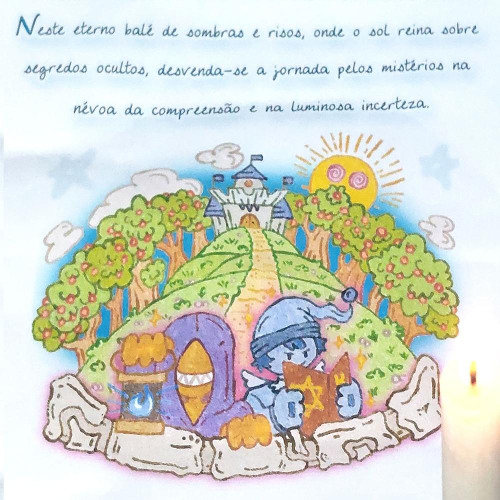 Neste eterno balé de sombras e risos, onde o sol reina sobre
segredos ocultos, desvenda-se a jornada pelos mistérios na
névoa da compreensão e na luminosa incerteza.